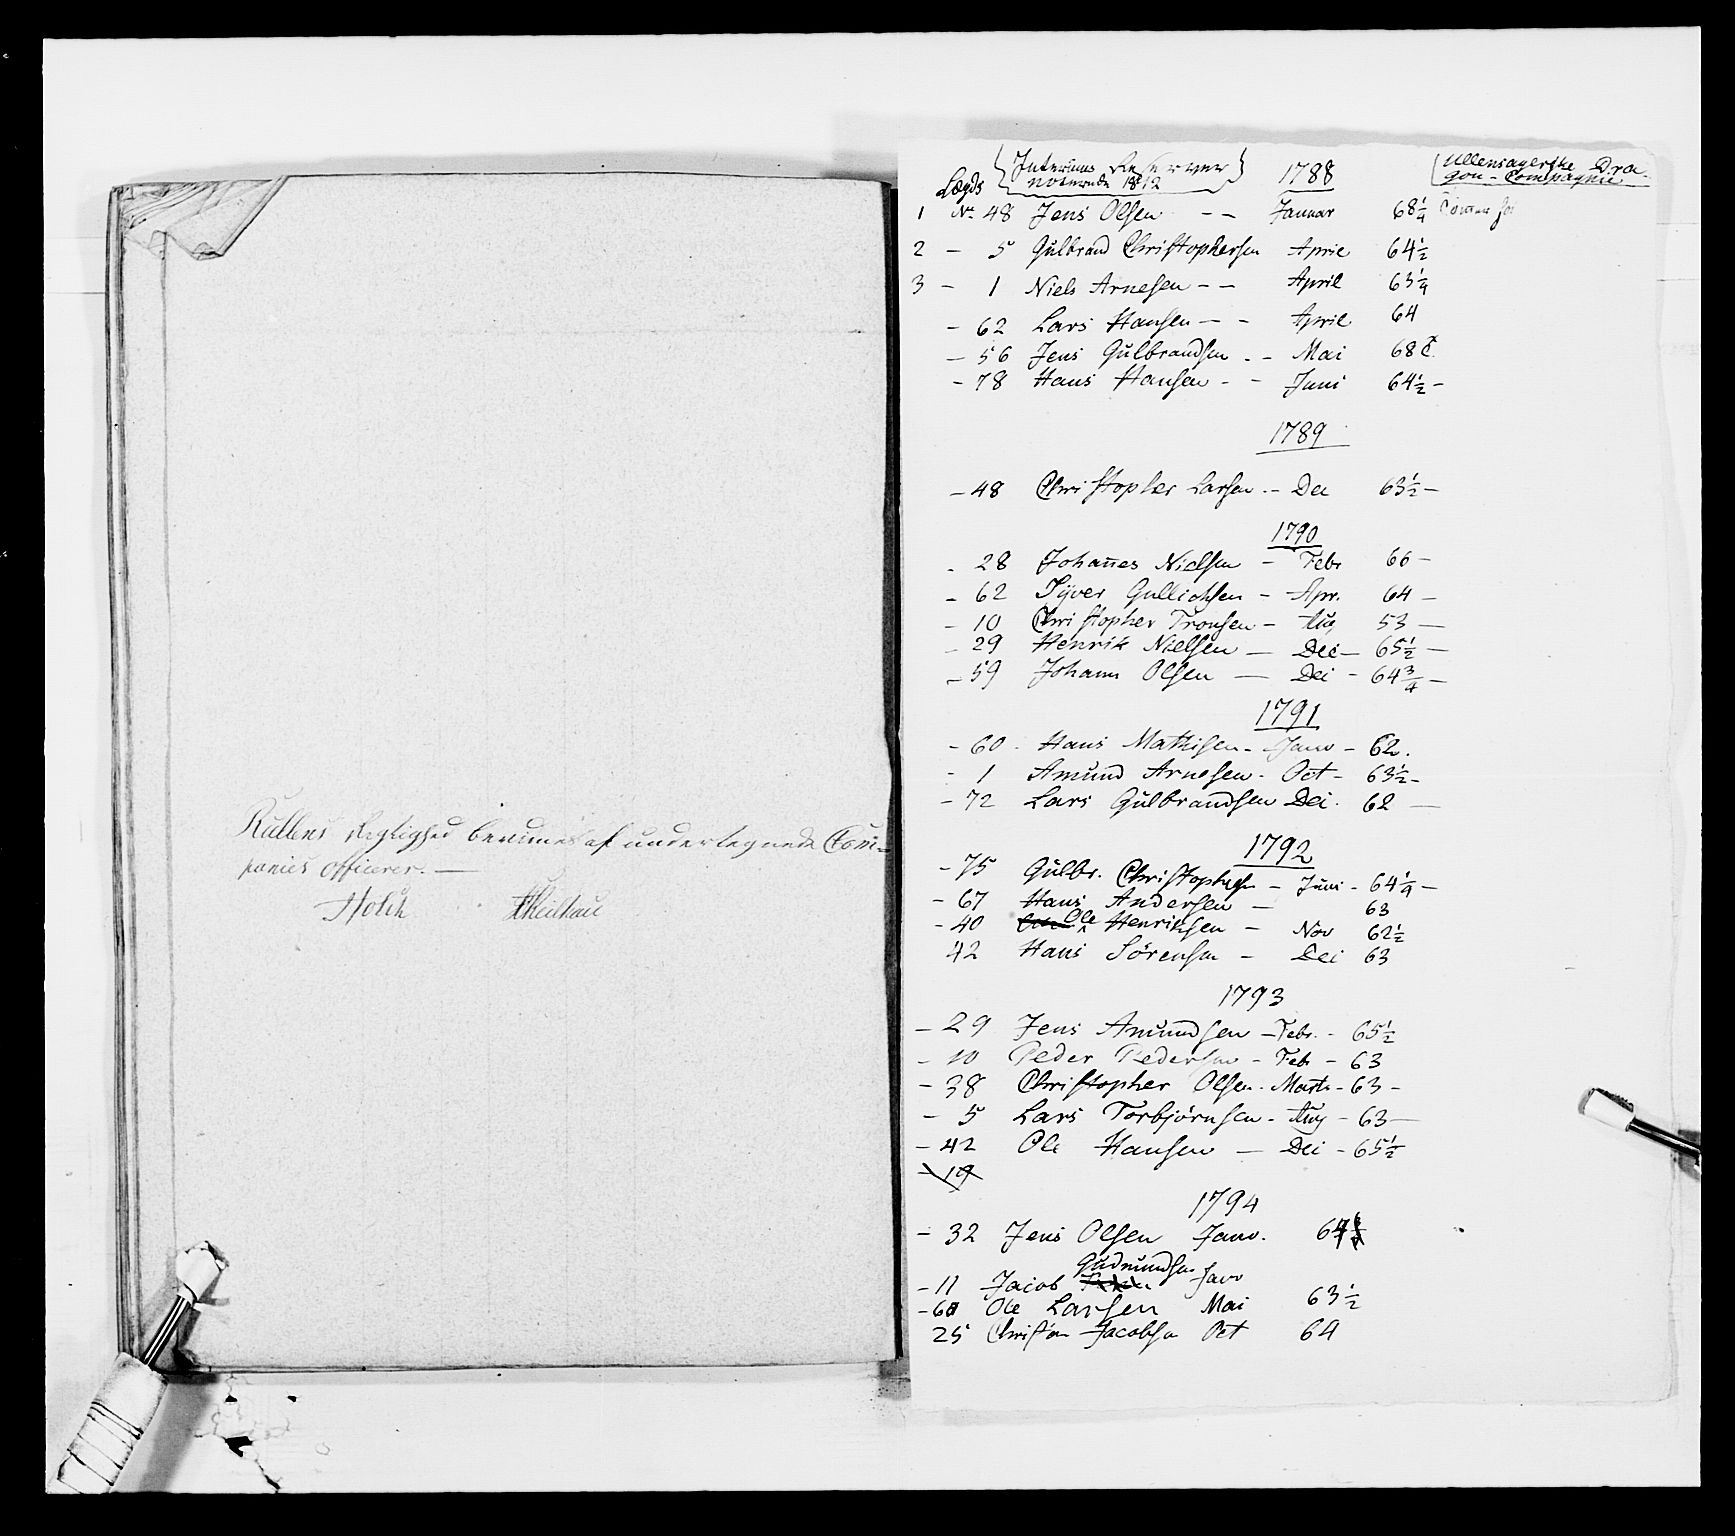 Rullens Rigtighed bevidnes af undertegnede Com-
panies Officerer. —
Holck Theilsau
Lægds { Interims Reserver } 1788 Ullensagerske Dra-
noterede 1812 gon-Compagnie
1 No 48 Jens Olsen - - Januar 68 1/4
2 - 5 Gulbrand Christophersen April 64 1/2
3 - 1 Niels Arnesen - - April 63 1/4
- 62 Lars Hansen - - April 64
- 56 Jens Gulbrandsen - - Mai 68
- 78 Hans Hansen - - Juni 64 1/2 -
1789
- 48 Christopher Larsen - - Dec 63 1/2 -
1790
- 28 Johannes Nielsen - Febr 66 -
- 62 Syver Gullichsen - Apr. 64 -
- 10 Christopher Tronsen - Aug 53 -
- 29 Henrik Nielsen - Dec - 65 1/2 -
- 59 Johann Olsen - Dec - 64 3/4 -
1791
- 60 - Hans Mathisen - Janv - 62.
- 1 Amund Arnesen - Oct - 63 1/2 -
- 72 Lars Gulbrandsen Dec. 62 -
1792
- 75 Gulbr. Christophersen - Juni - 64 1/4 -
- 67 Hans Andersen - 63
- 40 Ole Henriksen - Nov 62 1/2
42 Hans Sörensen - Dec 63
1793
- 29 Jens Amundsen - Febr. - 65 1/2
- 10 Peder Pedersen - Feb - 63
- 38 Christopher Olsen - Marts - 63 -
- 5 Lars Torbjörnsen - Aug - 63 -
- 42 Ole Hansen - Dec - 65 1/2
- 19
1794
- 32 Jens Olsen Janv. 64
Gudmundsen
- 11 Jacob Janv
- 60 Ole Larsen Mai 63 1/2
25 Christian Jacobsen Oct 64